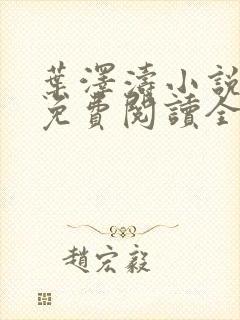 葉澤濤小說
免費閱讀全
趙宏毅